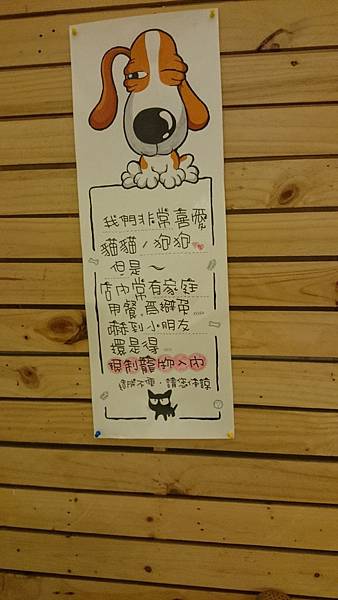 我們非常喜愛
貓貓、狗狗
但是~
店內常有家庭
用餐,為避免.....
嚇到小朋友
還是得...
限制寵物入內
造成不便,請您体諒